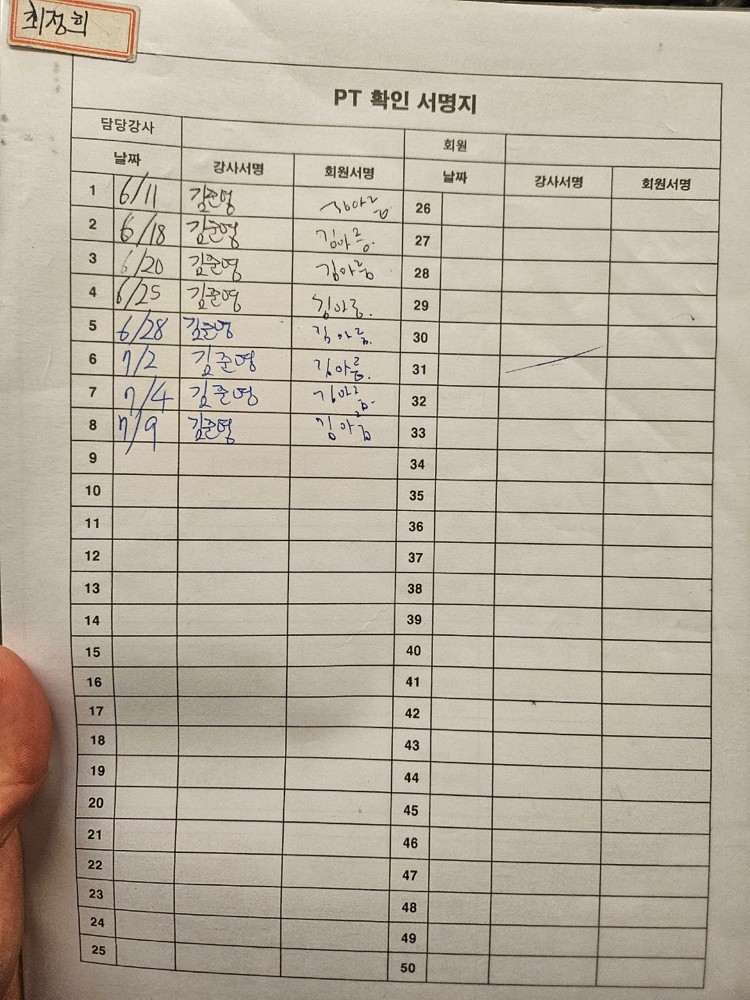 최정희
PT 확인 서명지
담당강사 회원
날짜 강사서명 회원서명 날짜 강사서명 회원서명
1 6/11 김준영 김아름 26
2 6/18 김준영 김아름. 27
3 6/20 김준영 김아름 28
4 6/25 김준영 김아름. 29
5 6/28 김준영 김아름. 30
6 7/2 김준영 김아름. 31
7 7/4 김준영 김아름. 32
8 7/9 김준영 김아름 33
9 34
10 35
11 36
12 37
13 38
14 39
15 40
16 41
17 42
18 43
19 44
20 45
21 46
22 47
23 48
24 49
25 50